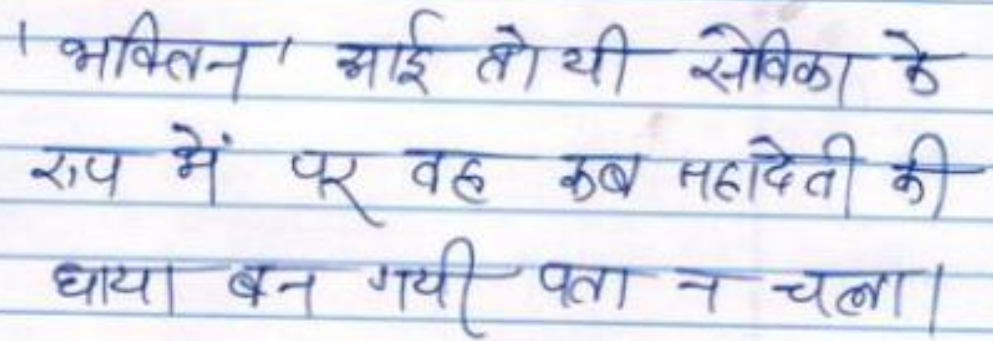 'भक्तिन' आई तो थी सेविका के
रूप में पर वह कब महादेवी की
छाया बन गयी पता न चला।